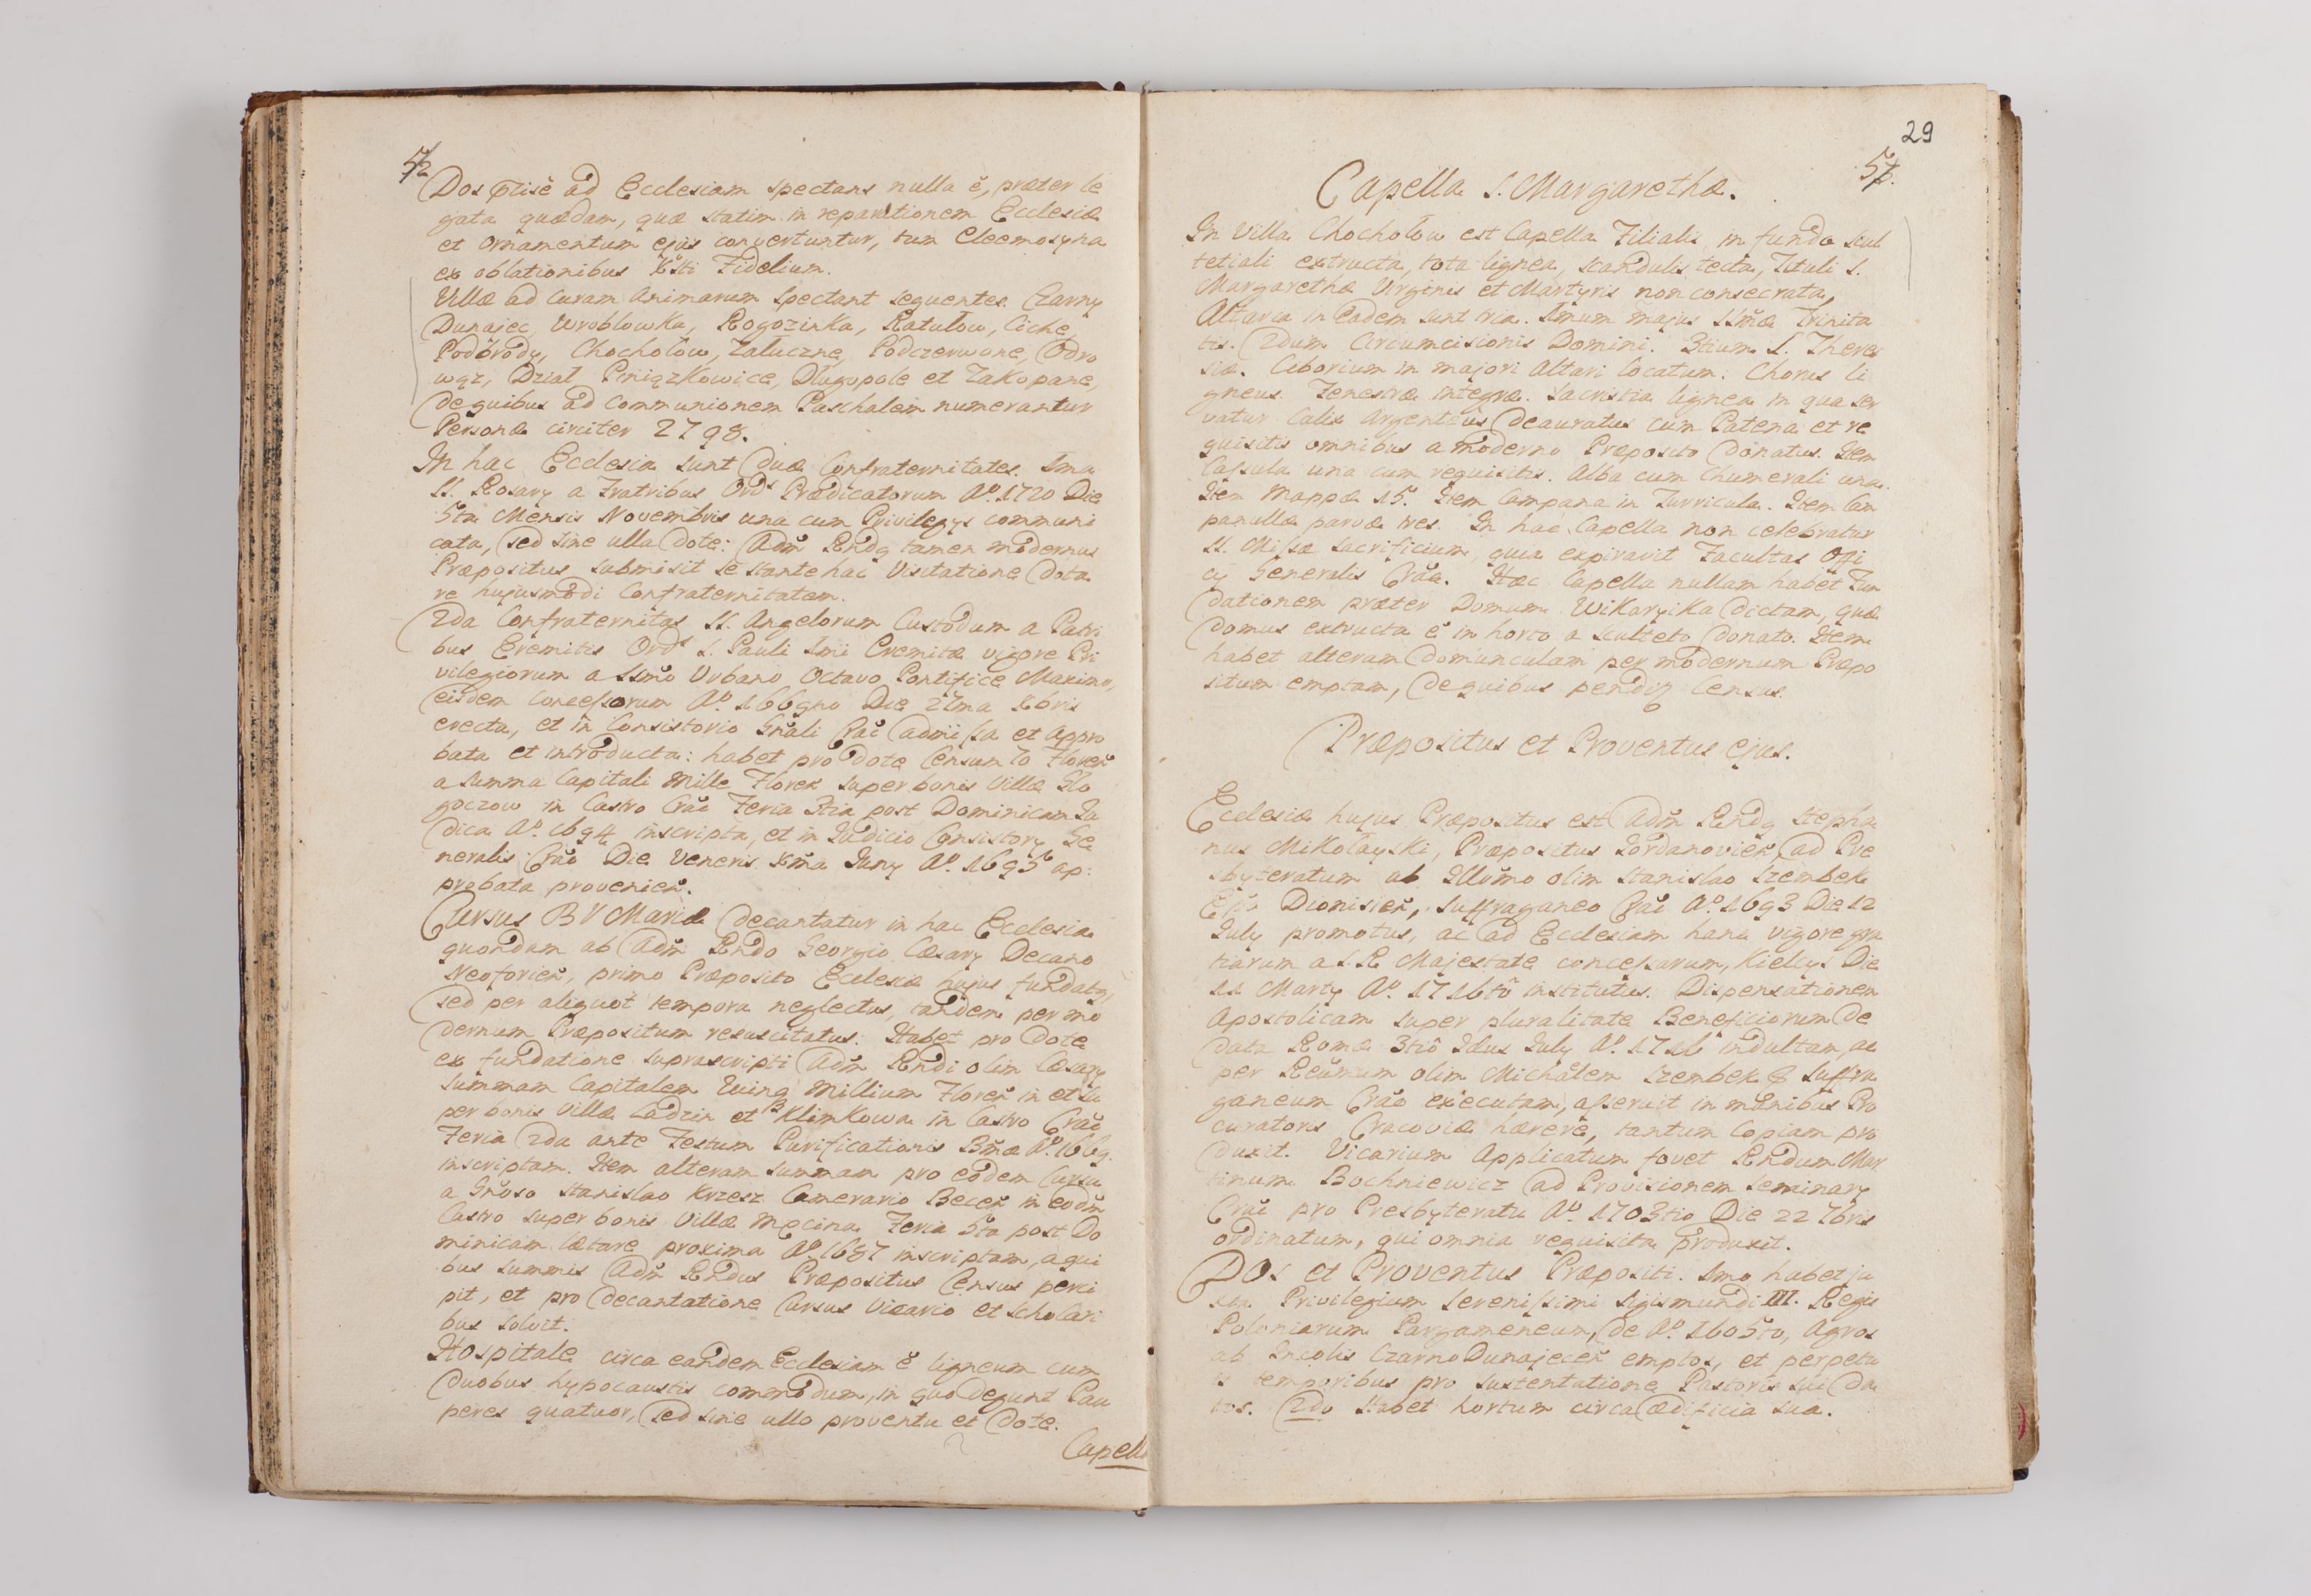 Dos ad Ecclesiam spectans nulla ẽ, præter le
gata quædam, quæ statim in reparationem Ecclesiæ
et ornamentum ejus convertuntur, tum Eleemosyna
ex oblationibus Xsti Fidelium.
Villæ ad curam animarum spectant sequentes Czarny
Dunajec, Wroblowka, Rogoznika, Ratułow, Ciche,
Chochołow, Załuczne, Podczerwone, Odro
wąz, Dział Pieniązkowice, Długopole et Zakopane,
de quibus ad Communionem Paschalem numerantur
Personæ circiter 2798.
In hac Ecclesia sunt duæ Confraternitates. 1ma
SS. Rosary a Fratribus Ords Prædicatorum Ao. 1720 Die
5ta Mensis Novembris una cum Privilegys communi
cata, sed sine ulla dote: Adm̃ Rndq tamen modernus
Præpositus submisit se stante hac Visitatione dota
re hujusmodi Confraternitatem.
2da Confraternitas SS. Angelorum Custodum a Patri
bus Eremitis Ords S. Pauli 1mi Eremitæ vigore Pri
vilegiorum a SSmo Urbano Octavo Pontifice Maximo,
eisdem concessorum Ao. 1669no Die 21ma Xbris
erecta, et in Consistorio Gñali Crãc admissa et appro
bata et introducta: habet pro dote Censum 70 Floreñ
a summa Capitali Mille Floreñ super bonis Villæ Gło
goczow in Castro Crãc Feria 3tia post Dominicam Ju
dica Ao. 1694 inscripta, et in Judicio Consistory Ge
neralis Crãc Die Veneris Juny Ao. 1695 ap:
probata provenieñ.
Cursus B V Mariæ decantatur in hac Ecclesia
quondam ab Adm̃ Rndo Georgio Cæsary Decano
Neoforieñ, primo Præposito Ecclesiæ hujus fundatq,
sed per aliquot tempora neglectus, tandem per mo
dernum Præpositum resuscitatus. Habet pro dote
ex fundatione suprascripti Adm̃ Rndi olim Cæsary
summam Capitalem Millium Floreñ in et su
per bonis Villæ Ladzin et Klimkowa in Castro Crãc
Feria 2da ante Festum Purificationis Bmæ Ao. 1669.
inscriptam. Item alteram summam pro eodem Cursu
a Gñoso Stanislao Krzesz Camerario Beceñ in eodm̃
Castro super bonis Villæ Mecina Feria 5ta post Do
minicam Lætare proxima Ao. 1687 inscriptam, a qui
bus summis Adm̃ Rndus Præpositus Census perci
pit, et pro decantatione Cursus Vicario et Scholari
bus solvit.
Hospitale circa eandem Ecclesiam ẽ ligneum cum
duobus hypocaustis commodum, in quo degunt Pau
peres quatuor, sed sine ullo proventu et dote.
Capella
29
57.
Capella S. Margarethæ.
In Villa Chochołow est Capella Filialis in fundo Scul
tetiali extructa, tota lignea, scandulis tecta, Tituli S.
Margarethæ Virginis et Martyris non consecrata,
Altaria in eadem sunt tria. 1mum majus SSmæ Trinita
tis. 2dum Circumcisionis Domini. 3tium S. There
siæ. Ciborium in majori Altari locatum: Chorus li
gneus. Fenestræ integræ. Sacristia lignea in qua ser
vatur Calix argenteus deauratus cum Patena et re
quisitis omnibus a moderno Præposito donatus. Item
Cassula una cum requisitis. Alba cum Chumerali una.
Item Mappæ 15. Item Campana in Turricula. Item Cam
panullæ parvæ tres. In hac Capella non celebratur
SS. Missæ Sacrificium, quia expiravit Facultas Offi
cy Generalis Crãc. Hæc Capella nullam habet Fun
dationem præter Domum Wikaryika dictam, quæ
Domus extructa ẽ in horto a Sculteto donato. Item
habet alteram domunculam per modernum Præpo
situm emptam, de quibus Census.
Præpositus et Proventus ejus.
Ecclesiæ hujus Præpositus est Adm̃ Rndq Stepha
nus Mikołayski, Præpositus Jordanovieñ, ad Pre
sbyteratum ab Illmo olim Stanislao Szembek
Dionisieñ, Suffraganeo Crãc Ao. 1693 Die 12
July promotus, ac ad Ecclesiam hanc vigore gra
tiarum a S. R Majestate concessarum, Kielcys Die
11 Marty Ao. 1716to institutus. Dispensationem
Apostolicam super pluralitate Beneficiorum de
data Romæ 3tio Idus July Ao. 1716 indultam, ac
per Rẽumum olim Michãlem Szembek Suffra
ganeum Crãc executam, asseruit in manibus Pro
curatoris Cracoviæ hærere, tantum Copiam pro
duxit. Vicarium Applicatum fovet Rndum Mar
tinum Bochniewicz ad Provisionem Seminary
Crãc pro Presbyteratu Ao. 1703tio Die 22 7bris
ordinatum, qui omnia requisita produxit.
Dos et Proventus Præpositi. 1mo habet ju
xta Privilegium Serenissimi Sigismundi III. Regis
Poloniarum Pargameneum, de Ao. 1605to, Agros
ab Incolis CzarnoDunajeceñ emptos, et perpetu
is temporibus pro sustentatione Pastoris sui da
tos. 2do Habet hortum circa ædificia sua.